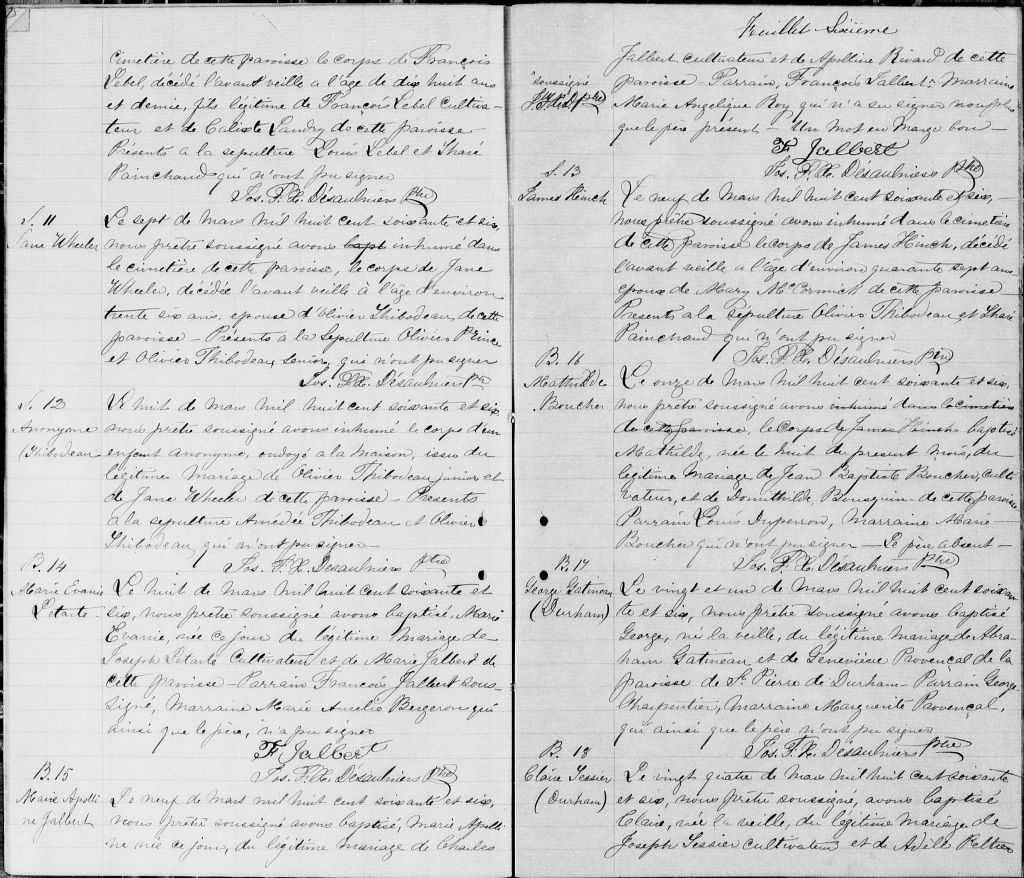 cimetière de cette paroisse le corps de François
Lebel, décédé l'avant veille a l'âge de dix huit ans
et demie, fils légitime de François Lebel Cultiva-
teur et de Calixte Landry de cette paroisse -
Présents a la sepulture Louis Lebel et Isharé
Painchaud qui n'ont pu signer
Jos. F. X. Désaulniers Ptre
S. 11
Jane Wheeler
Le sept de mars mil huit cent soixante et six,
nous prêtre soussigné avons bapt inhumé dans
le cimetière de cette paroisse, le corps de Jane
Wheeler, décédée l'avant veille à l'âge d'environ
trente six ans, epouse d'Olivier Thibodeau, de cette
paroisse - Présents a la Sepulture Olivier Prince
et Olivier Thibodeau, senior, qui n'ont pu signer
Jos. F. X. Désaulniers Ptre
S. 12
Anonyme
Thibodeau
Le huit de mars mil huit cent soixante et six
nous prêtre soussigné avons inhumé le corps d'un
enfant anonyme, ondoyé a la maison, issu du
légitime mariage de Olivier Thibodeau junior et
de Jane Wheeler de cette paroisse - Presents
a la sepulture Amédée Thibodeau et Olivier
Thibodeau, qui n'ont pu signer -
Jos. F. X. Désaulniers Ptre
B. 14
Marie Evanie
Letarte
Le huit de mars mil huit cent soixante et
six, nous prêtre soussigné avons baptisé, Marie
Evanie, née ce jour du légitime mariage de
Joseph Letarte Cultivateur et de Marie Jalbert de
cette paroisse - Parrain François Jalbert sous-
signé, Marraine Marie Aurelie Bergeron qui
ainsi que le père, n'a pu signer
F Jalbert
Jos. F. X. Désaulniers Ptre
B. 15
Marie Apolli
ne Jalbert
Le neuf de mars mil huit cent soixante et six,
nous prêtre soussigné avons baptisé, Marie Apolli-
ne née ce jour, du légitime mariage de Charles
Feuillet Sixième
Jalbert cultivateur et de Apolline Rivard de cette
paroisse - Parrain, François Jalbert Marraine
Marie Angelique Roy qui n'a su signer non plus
que le père présent - Un mot en marge bon -
soussigné
F Jalbert
Jos. F. X. Désaulniers Ptre
S. 13
James Hinch
Le neuf de mars mil huit cent soixante et six,
nous prêtre soussigné avons inhumé dans le cimetière
de cette paroisse le corps de James Hinch, décédé
l'avant veille a l'âge d'environ quarante sept ans
epoux de Mary McCormick de cette paroisse
Présents a la Sépulture Olivier Thibodeau et Isharé
Painchaud qui n'ont pu signer
Jos. F. X. Désaulniers Ptre
B. 16
Mathilde
Boucher
Le onze de mars mil huit cent soixante et six,
nous prêtre soussigné avons inhumé dans le cimetière
de cette paroisse, le corps de James Hinch baptisé
Mathilde, née le huit du present mois, du
légitime mariage de Jean Baptiste Boucher, Culti-
vateur, et de Domithilde Bourquin de cette paroisse
Parrain Louis Duperron, Marraine Marie
Boucher qui n'ont pu signer - Le père absent -
Jos. F. X. Désaulniers Ptre
B. 17
George Gatineau
(Durham)
Le vingt et un de mars mil huit cent soixan-
te et six, nous prêtre soussigné avons baptisé
George, né la veille, du légitime mariage de Abra-
ham Gatineau et de Geneviève Provençal de la
paroisse de St Pierre de Durham - Parrain George
Charpentier, marraine Marguerite Provençal,
qui ainsi que le père n'ont pu signer
Jos. F. X. Désaulniers Ptre
B. 18
Claire Tessier
(Durham)
Le vingt quatre de mars mil huit cent soixante
et six, nous prêtre soussigné, avons baptisé
Clair, née la veille, du légitime mariage de
Joseph Tessier cultivateur et de Adèle Peltier